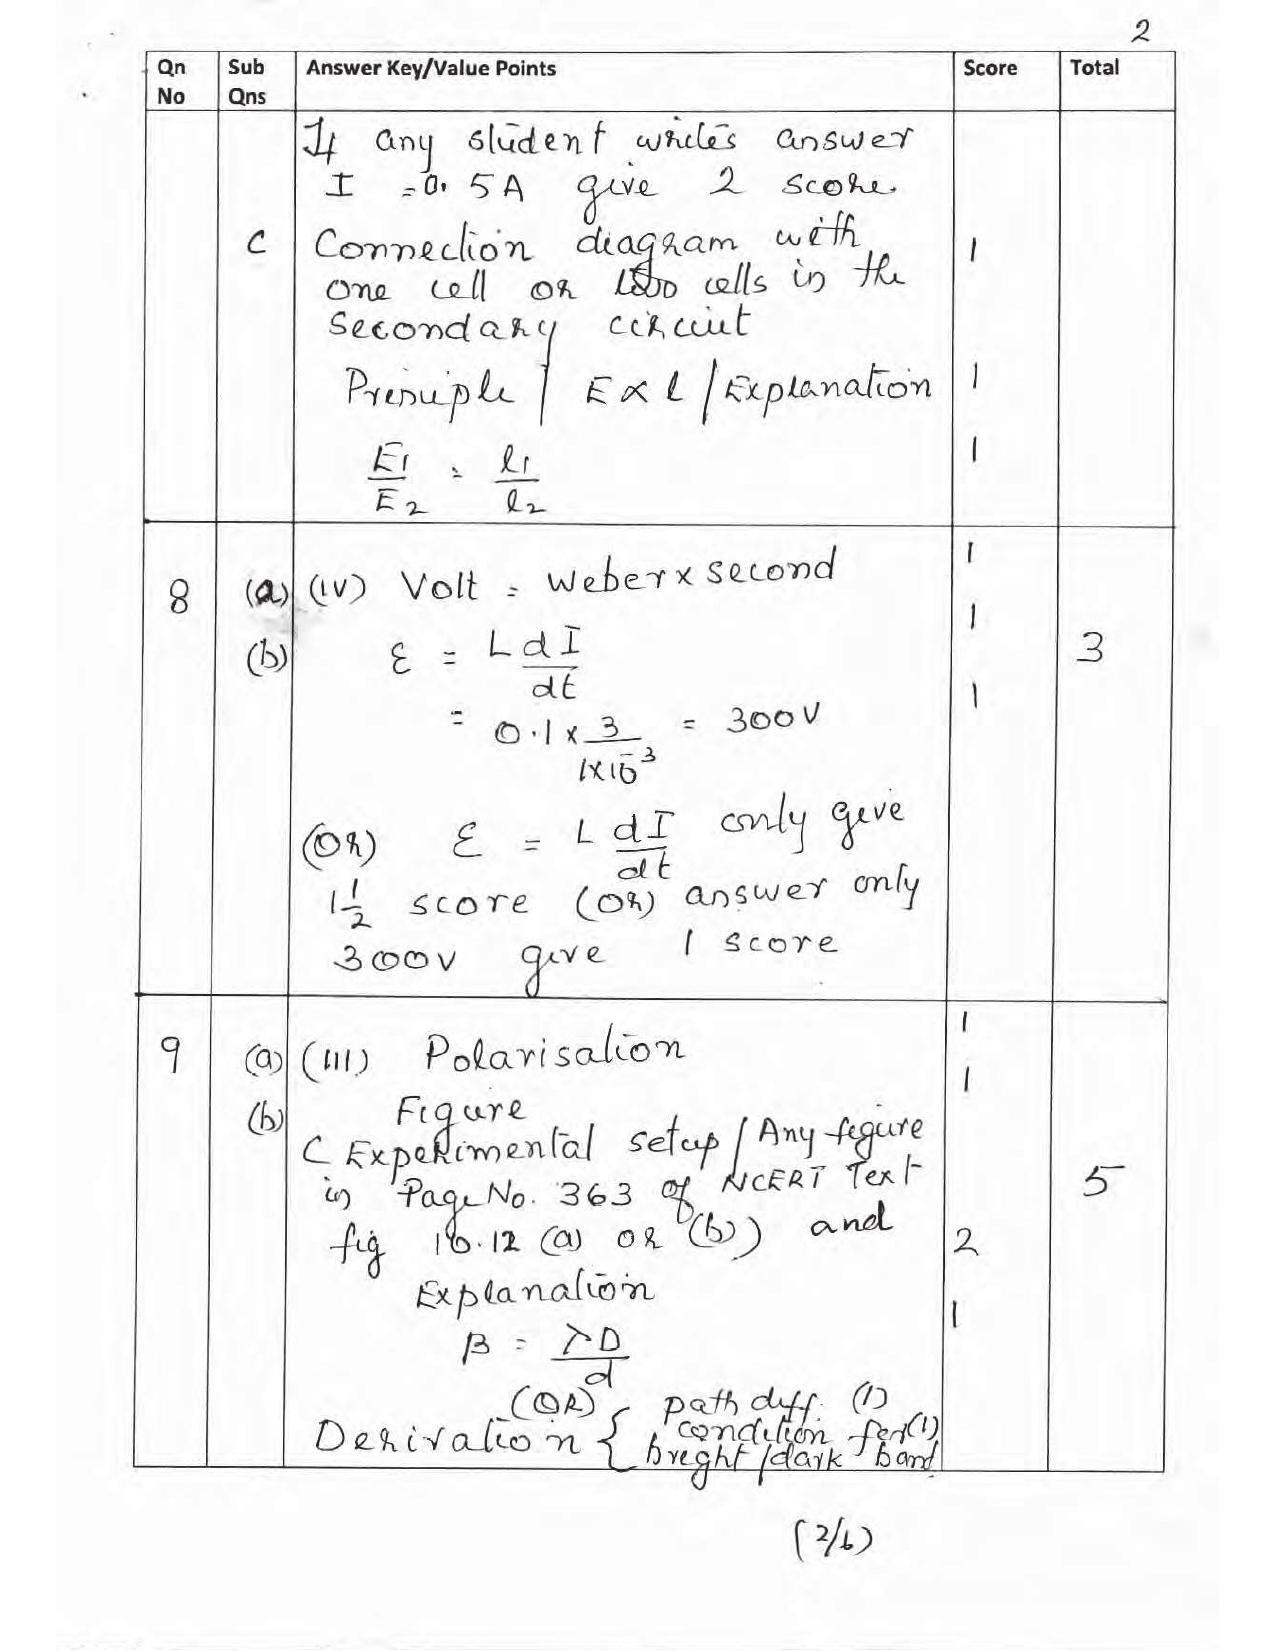 2
Qn No Sub Qns Answer Key/Value Points Score Total
If any student writes answer
I = 0.5A give 2 score.
C Connection diagram with 1
one cell or two cells in the
secondary circuit
Principle / E ∝ l / Explanation 1
E1/E2 = l1/l2 1
8 (a) (iv) Volt = Weber x second 1
(b) ε = L dI/dt 1 3
= 0.1 x 3/1x10^-3 = 300V 1
(OR) ε = L dI/dt only give
1 1/2 score (OR) answer only
300V give 1 score
9 (a) (iii) Polarisation 1
(b) Figure 1
( Experimental setup / Any figure
in Page No. 363 of NCERT Text 5
fig 10.12 (a) or (b)) and 2
Explanation
β = λD/d 1
(OR)
Derivation { path diff. (1)
condition for (1)
bright/dark band
(2/6)